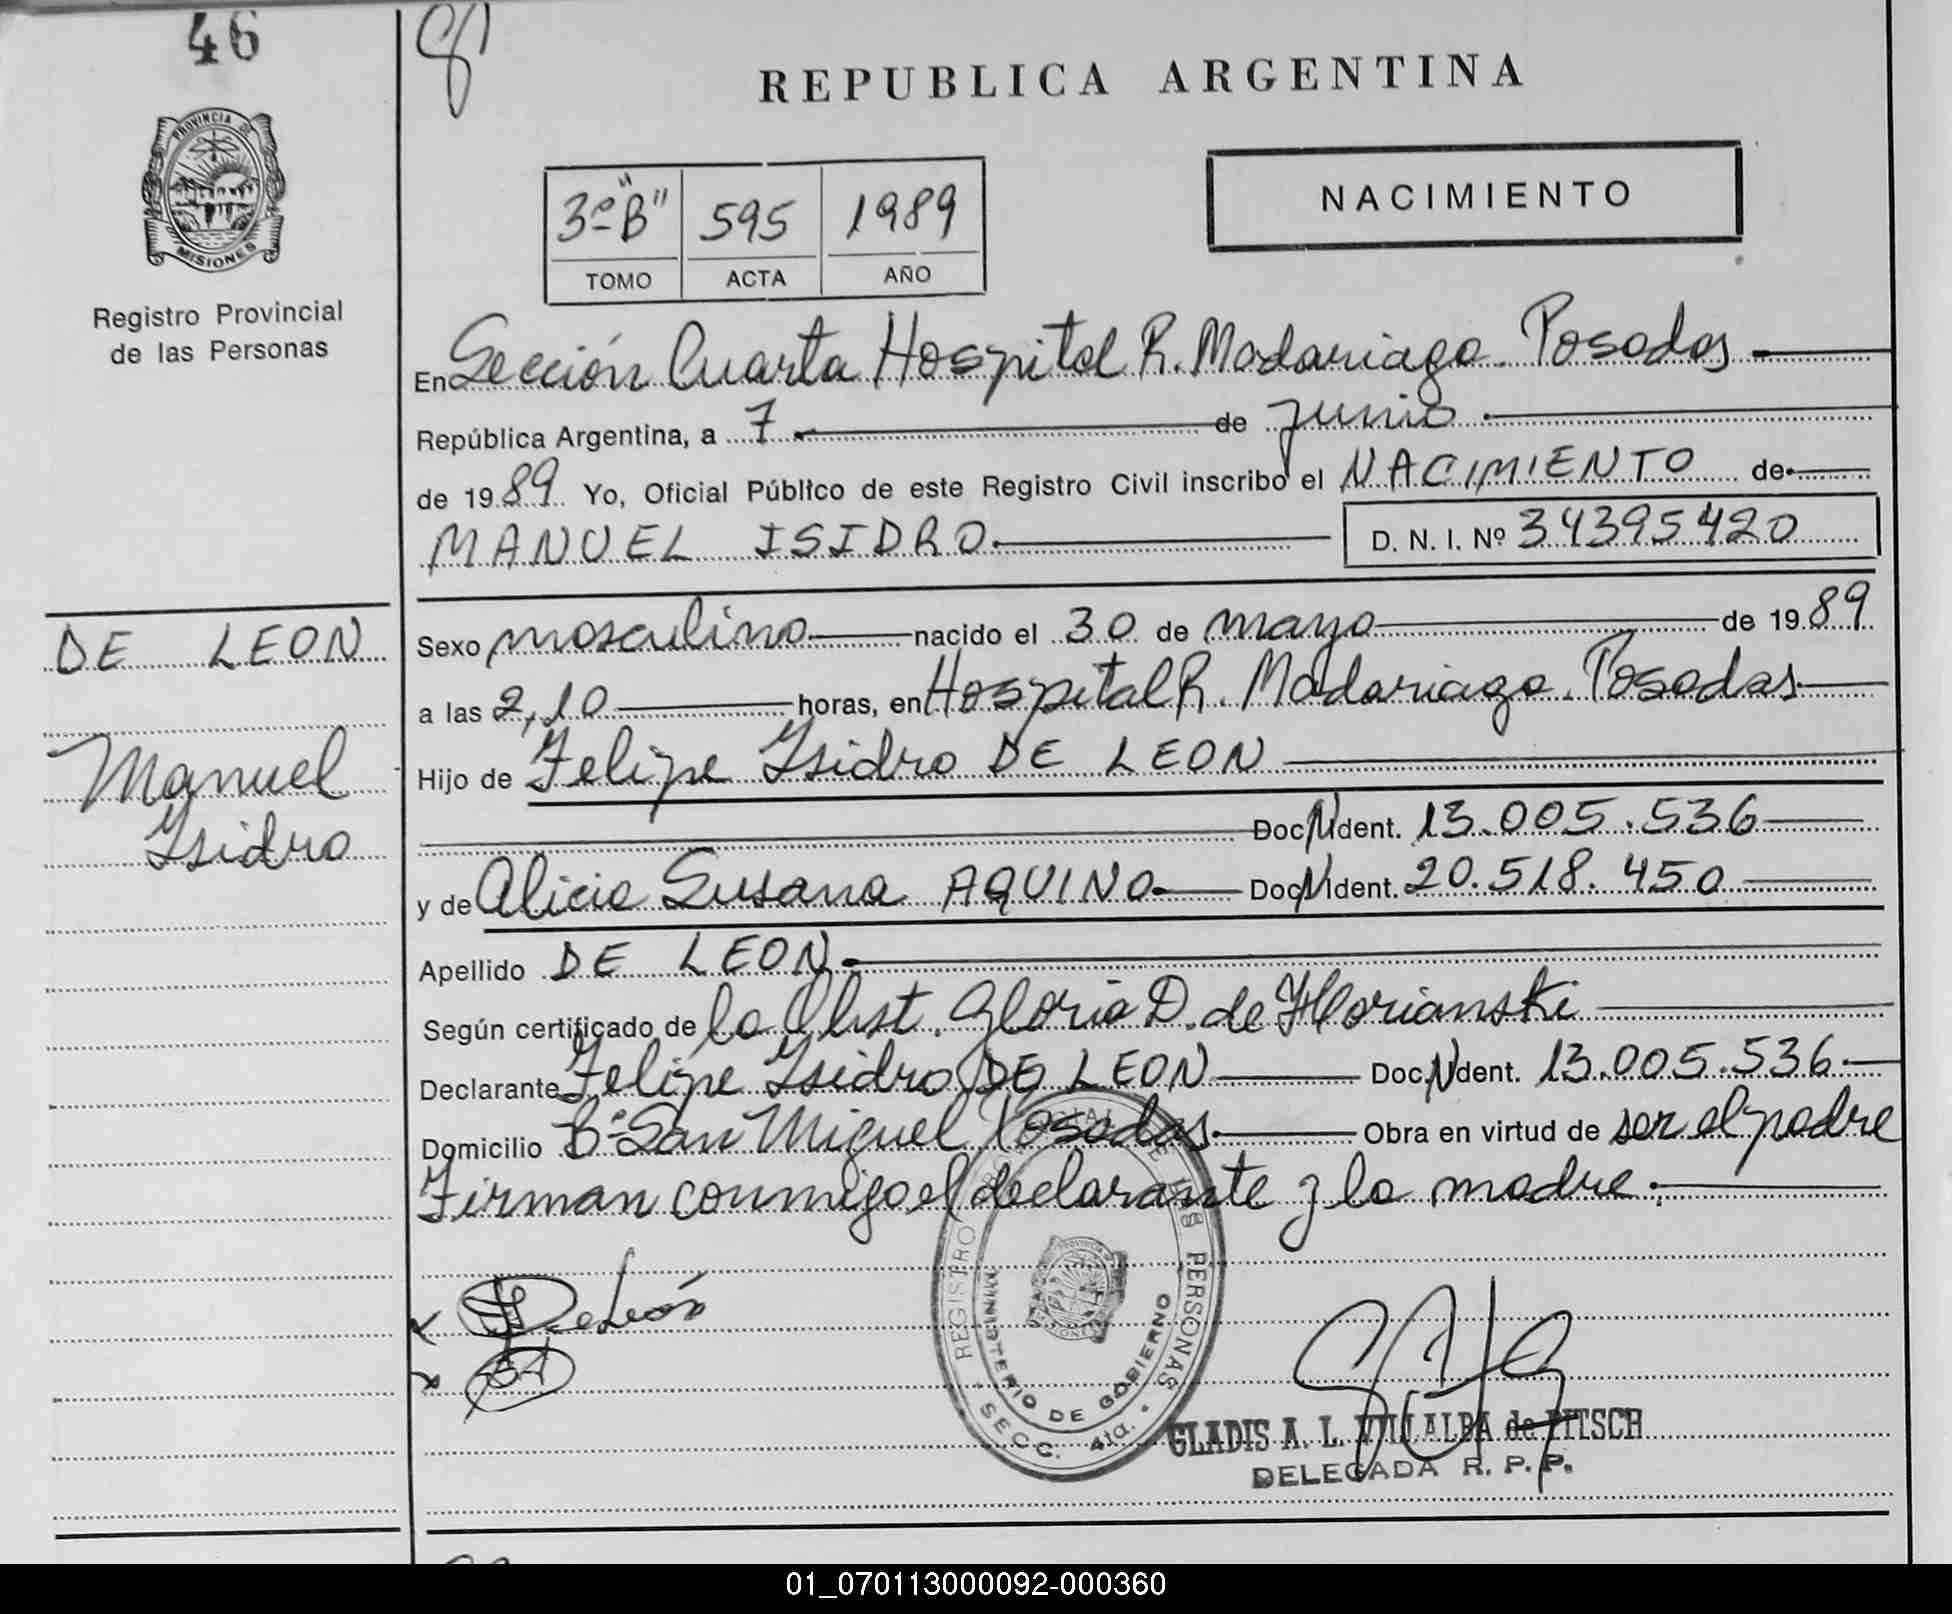 46
REPUBLICA ARGENTINA
PROVINCIA DE
MISIONES
Registro Provincial
de las Personas
3º "B" 595 1989
TOMO ACTA AÑO
NACIMIENTO
En Sección Cuarta Hospital R. Madariaga. Posadas
República Argentina, a 7 de junio
de 1989 Yo, Oficial Público de este Registro Civil inscribo el NACIMIENTO de
MANUEL ISIDRO D. N. I. Nº 34395420
DE LEON
Manuel
Isidro
Sexo masculino nacido el 30 de mayo de 1989
a las 2,10 horas, en Hospital R. Madariaga. Posadas
Hijo de Felipe Isidro DE LEON
Doc. Ident. 13.005.536
y de Alicia Susana AQUINO Doc. Ident. 20.518.450
Apellido DE LEON
Según certificado de la Obst. Gloria D. de Florianski
Declarante Felipe Isidro DE LEON Doc. Ident. 13.005.536
Domicilio Bº San Miguel Posadas Obra en virtud de ser el padre
Firman conmigo el declarante y la madre
De León
REGISTRO PROVINCIAL DE LAS PERSONAS
MINISTERIO DE GOBIERNO
SECC. 4ta.
GLADIS A. L. VILLALBA de
DELEGADA R. P. P.
01_070113000092-000360